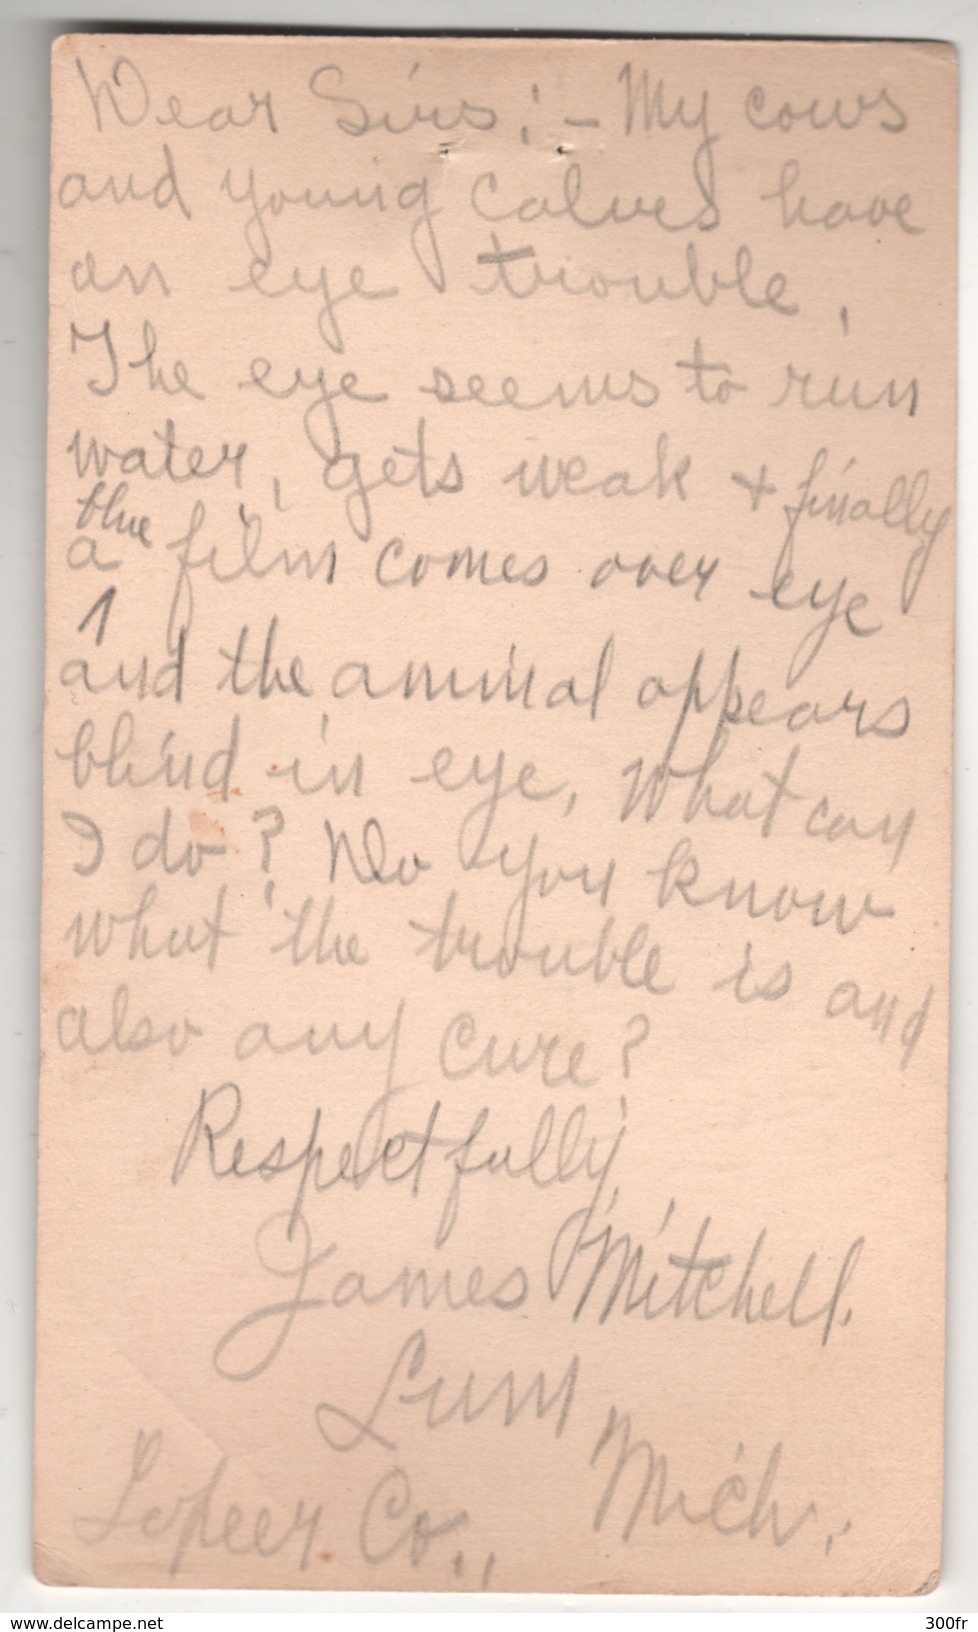 Dear Sirs:- My cows
and young calves have
an eye trouble.
The eye seems to run
water, gets weak + finally
blue
a film comes over eye
and the animal appears
blind in eye, What can
I do? Do you know
what the trouble is and
also any cure?
Respectfully,
James Mitchell.
Lum,
Mich.
Lapeer Co.,
www.delcampe.net
300fr